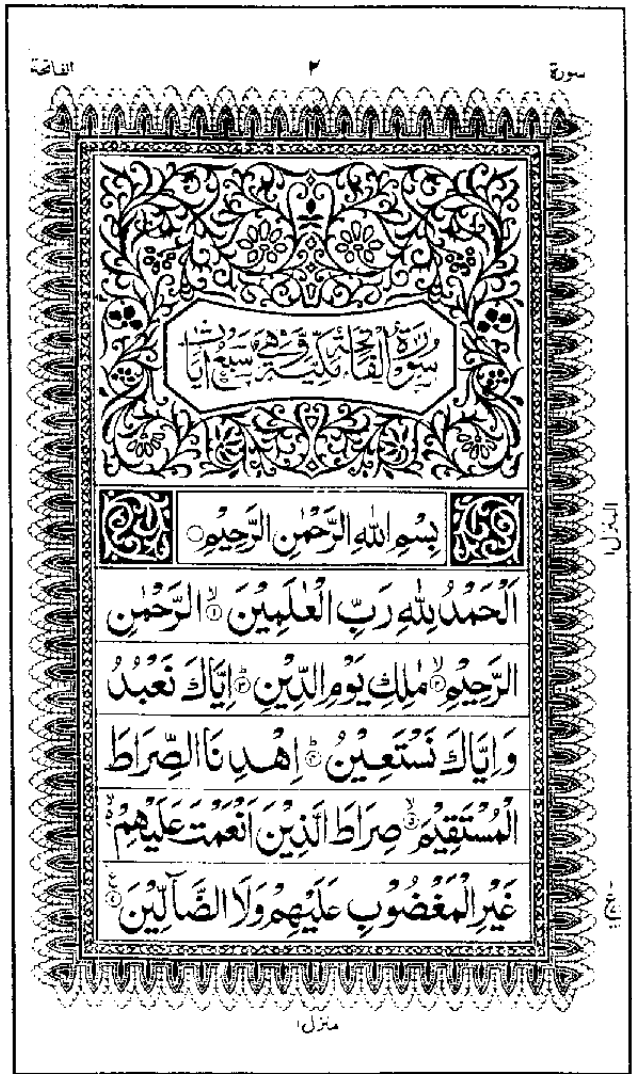 سورة ٢ الفاتحة
سُوْرَةُ الْفَاتِحَةِ مَكِّيَّةٌ وَّهِيَ سَبْعُ اٰيَاتٍ
بِسْمِ اللّٰهِ الرَّحْمٰنِ الرَّحِيْمِ ○
اَلْحَمْدُ لِلّٰهِ رَبِّ الْعٰلَمِيْنَ ۙ﴿۱﴾ الرَّحْمٰنِ
الرَّحِيْمِ ۙ﴿۲﴾ مٰلِكِ يَوْمِ الدِّيْنِ ؕ﴿۳﴾ اِيَّاكَ نَعْبُدُ
وَاِيَّاكَ نَسْتَعِيْنُ ؕ﴿۴﴾ اِهْدِنَا الصِّرَاطَ
الْمُسْتَقِيْمَ ۙ﴿۵﴾ صِرَاطَ الَّذِيْنَ اَنْعَمْتَ عَلَيْهِمْ ۙ
غَيْرِ الْمَغْضُوْبِ عَلَيْهِمْ وَلَا الضَّآلِّيْنَ
المنزل ١
ع
منزل ١